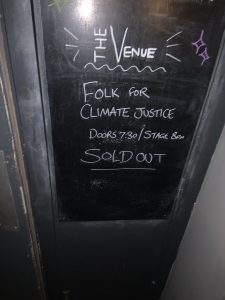 THE VENUE
FOLK FOR
CLIMATE JUSTICE
DOORS 7.30 / STAGE 8PM
SOLD OUT